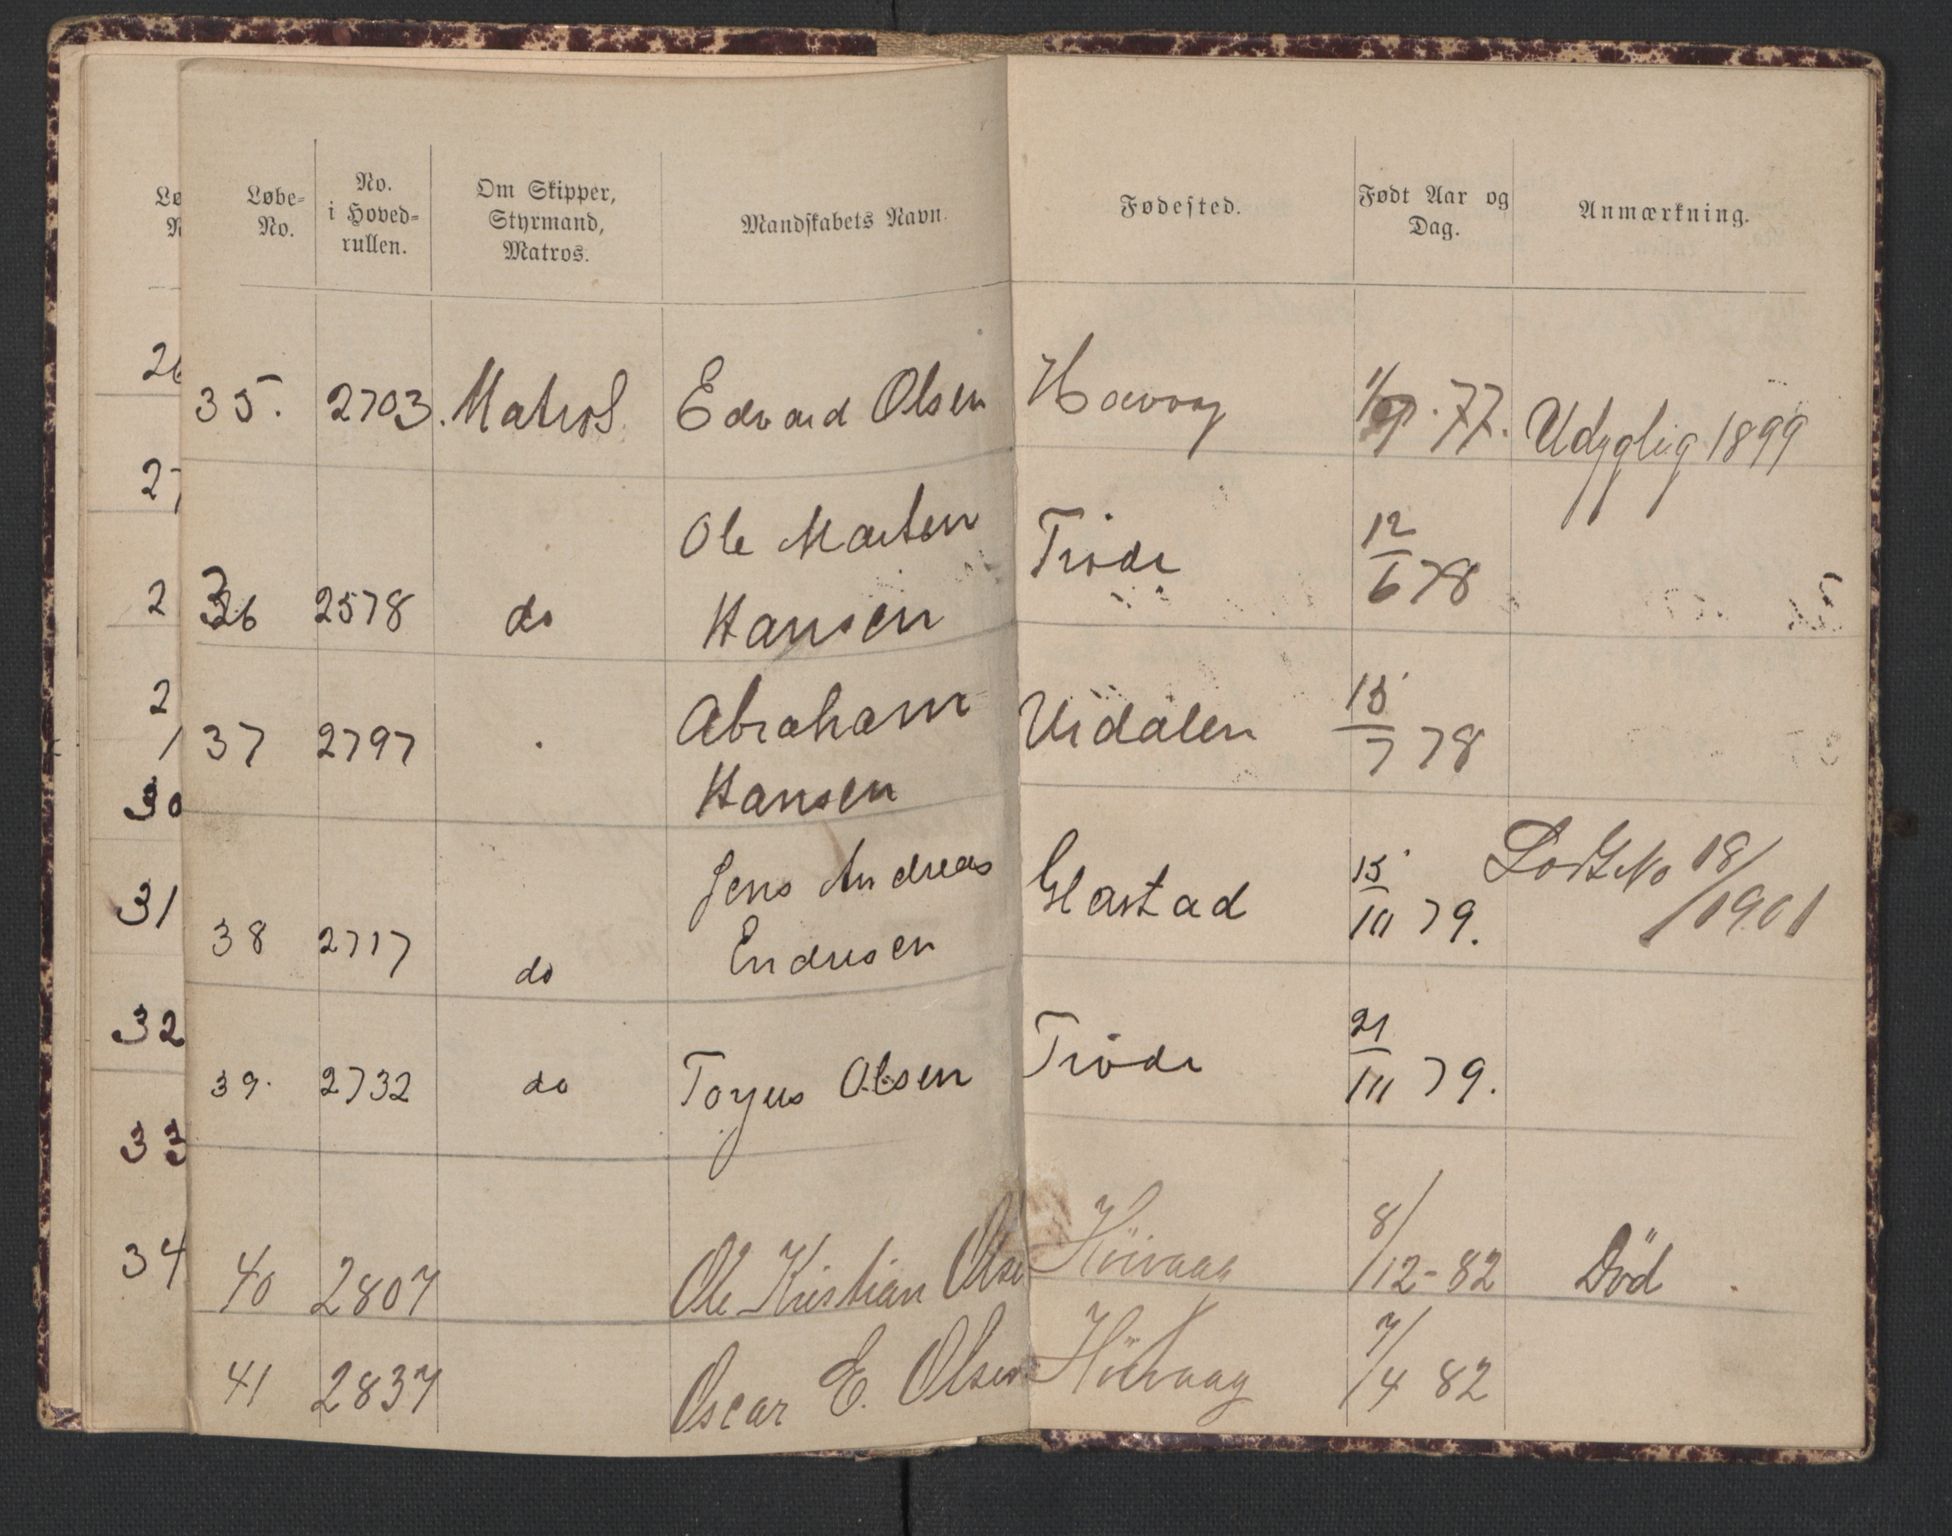 Lø
N
26
27
2
2
1
30
31
32
33
34
Løbe-
No.
No.
i Hoved-
rullen.
Om Skipper,
Styrmand,
Matros.
Mandskabets Navn.
Fødested.
Født Aar og
Dag.
Anmærkning.
35. 2703. Matros Edvard Olsen Høvvag 77. Udygtig 1899
Ole Marten Trøde 12
36 2578 do Hansen 6 78
Abraham 15
37 2797 Urdalen 7 78
Hansen
Jens Andreas Glastad 15 Lodt No 18/
38 2717 do Endresen 10 79. /1901
21
39. 2732 do Torjus Olsen Trøde 10 79.
8/
40 2807 Ole Kristian Olse Höivaag /12-82 Död
7/
41 2837 Oscar E. Olsen Höivaag /4 82